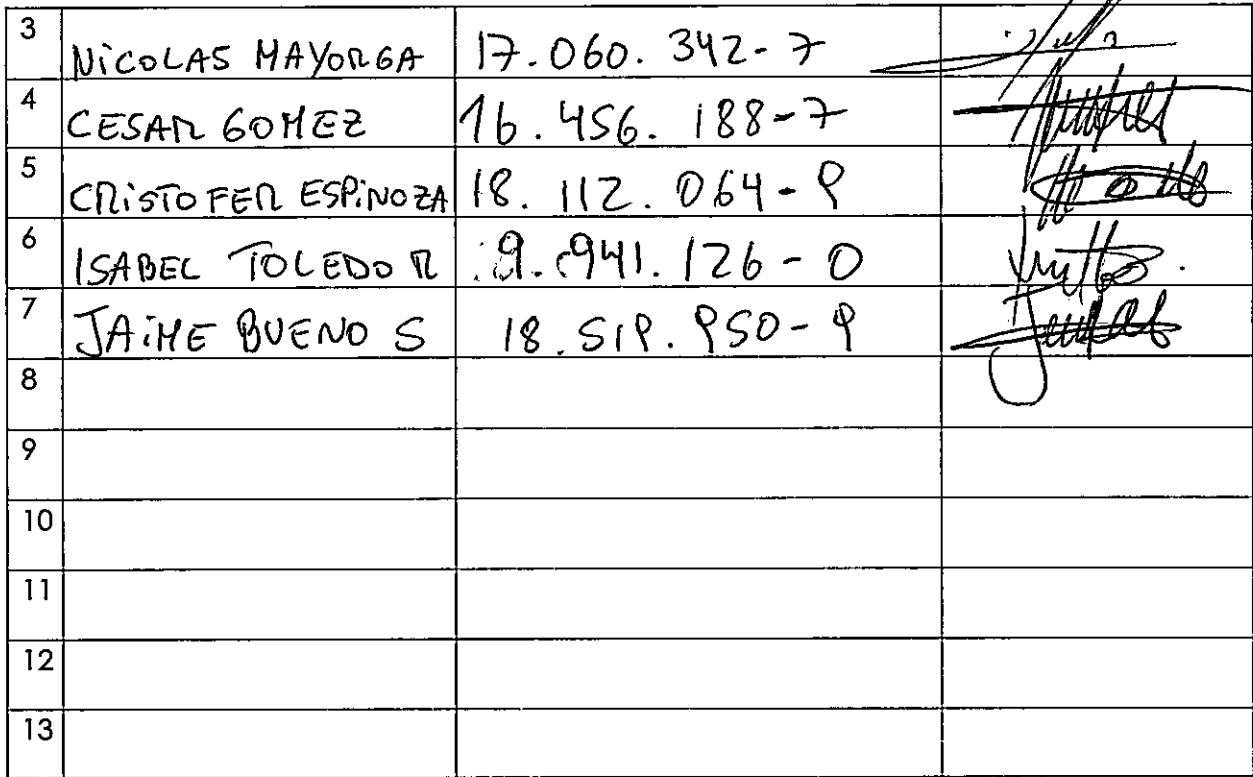 3 NiCOLAS MAYORGA 17.060.342-7
4 CESAR GOMEZ 16.456.188-7
5 CRiSTOFER ESPiNOZA 18.112.064-9
6 ISABEL TOLEDO R 9.941.126-0
7 JAiME BUENO S 18.519.950-9
8
9
10
11
12
13